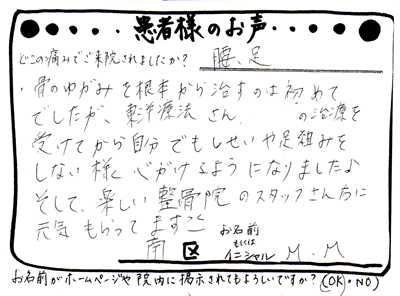 患者様のお声
どこの痛みでご来院されましたか? 腰、足
・骨のゆがみを根本から治すのは初めて
でしたが、東洋療法さん の治療を
受けてから自分でもしせいや足組みを
しない様に心がけるようになりましたよ
そして、楽しい整骨院のスタッフさん方に
元気もらってます
南 区 お名前もしくはイニシャル M.M
お名前がホームページや院内に掲示されてもよろしいですか?(OK・NO)